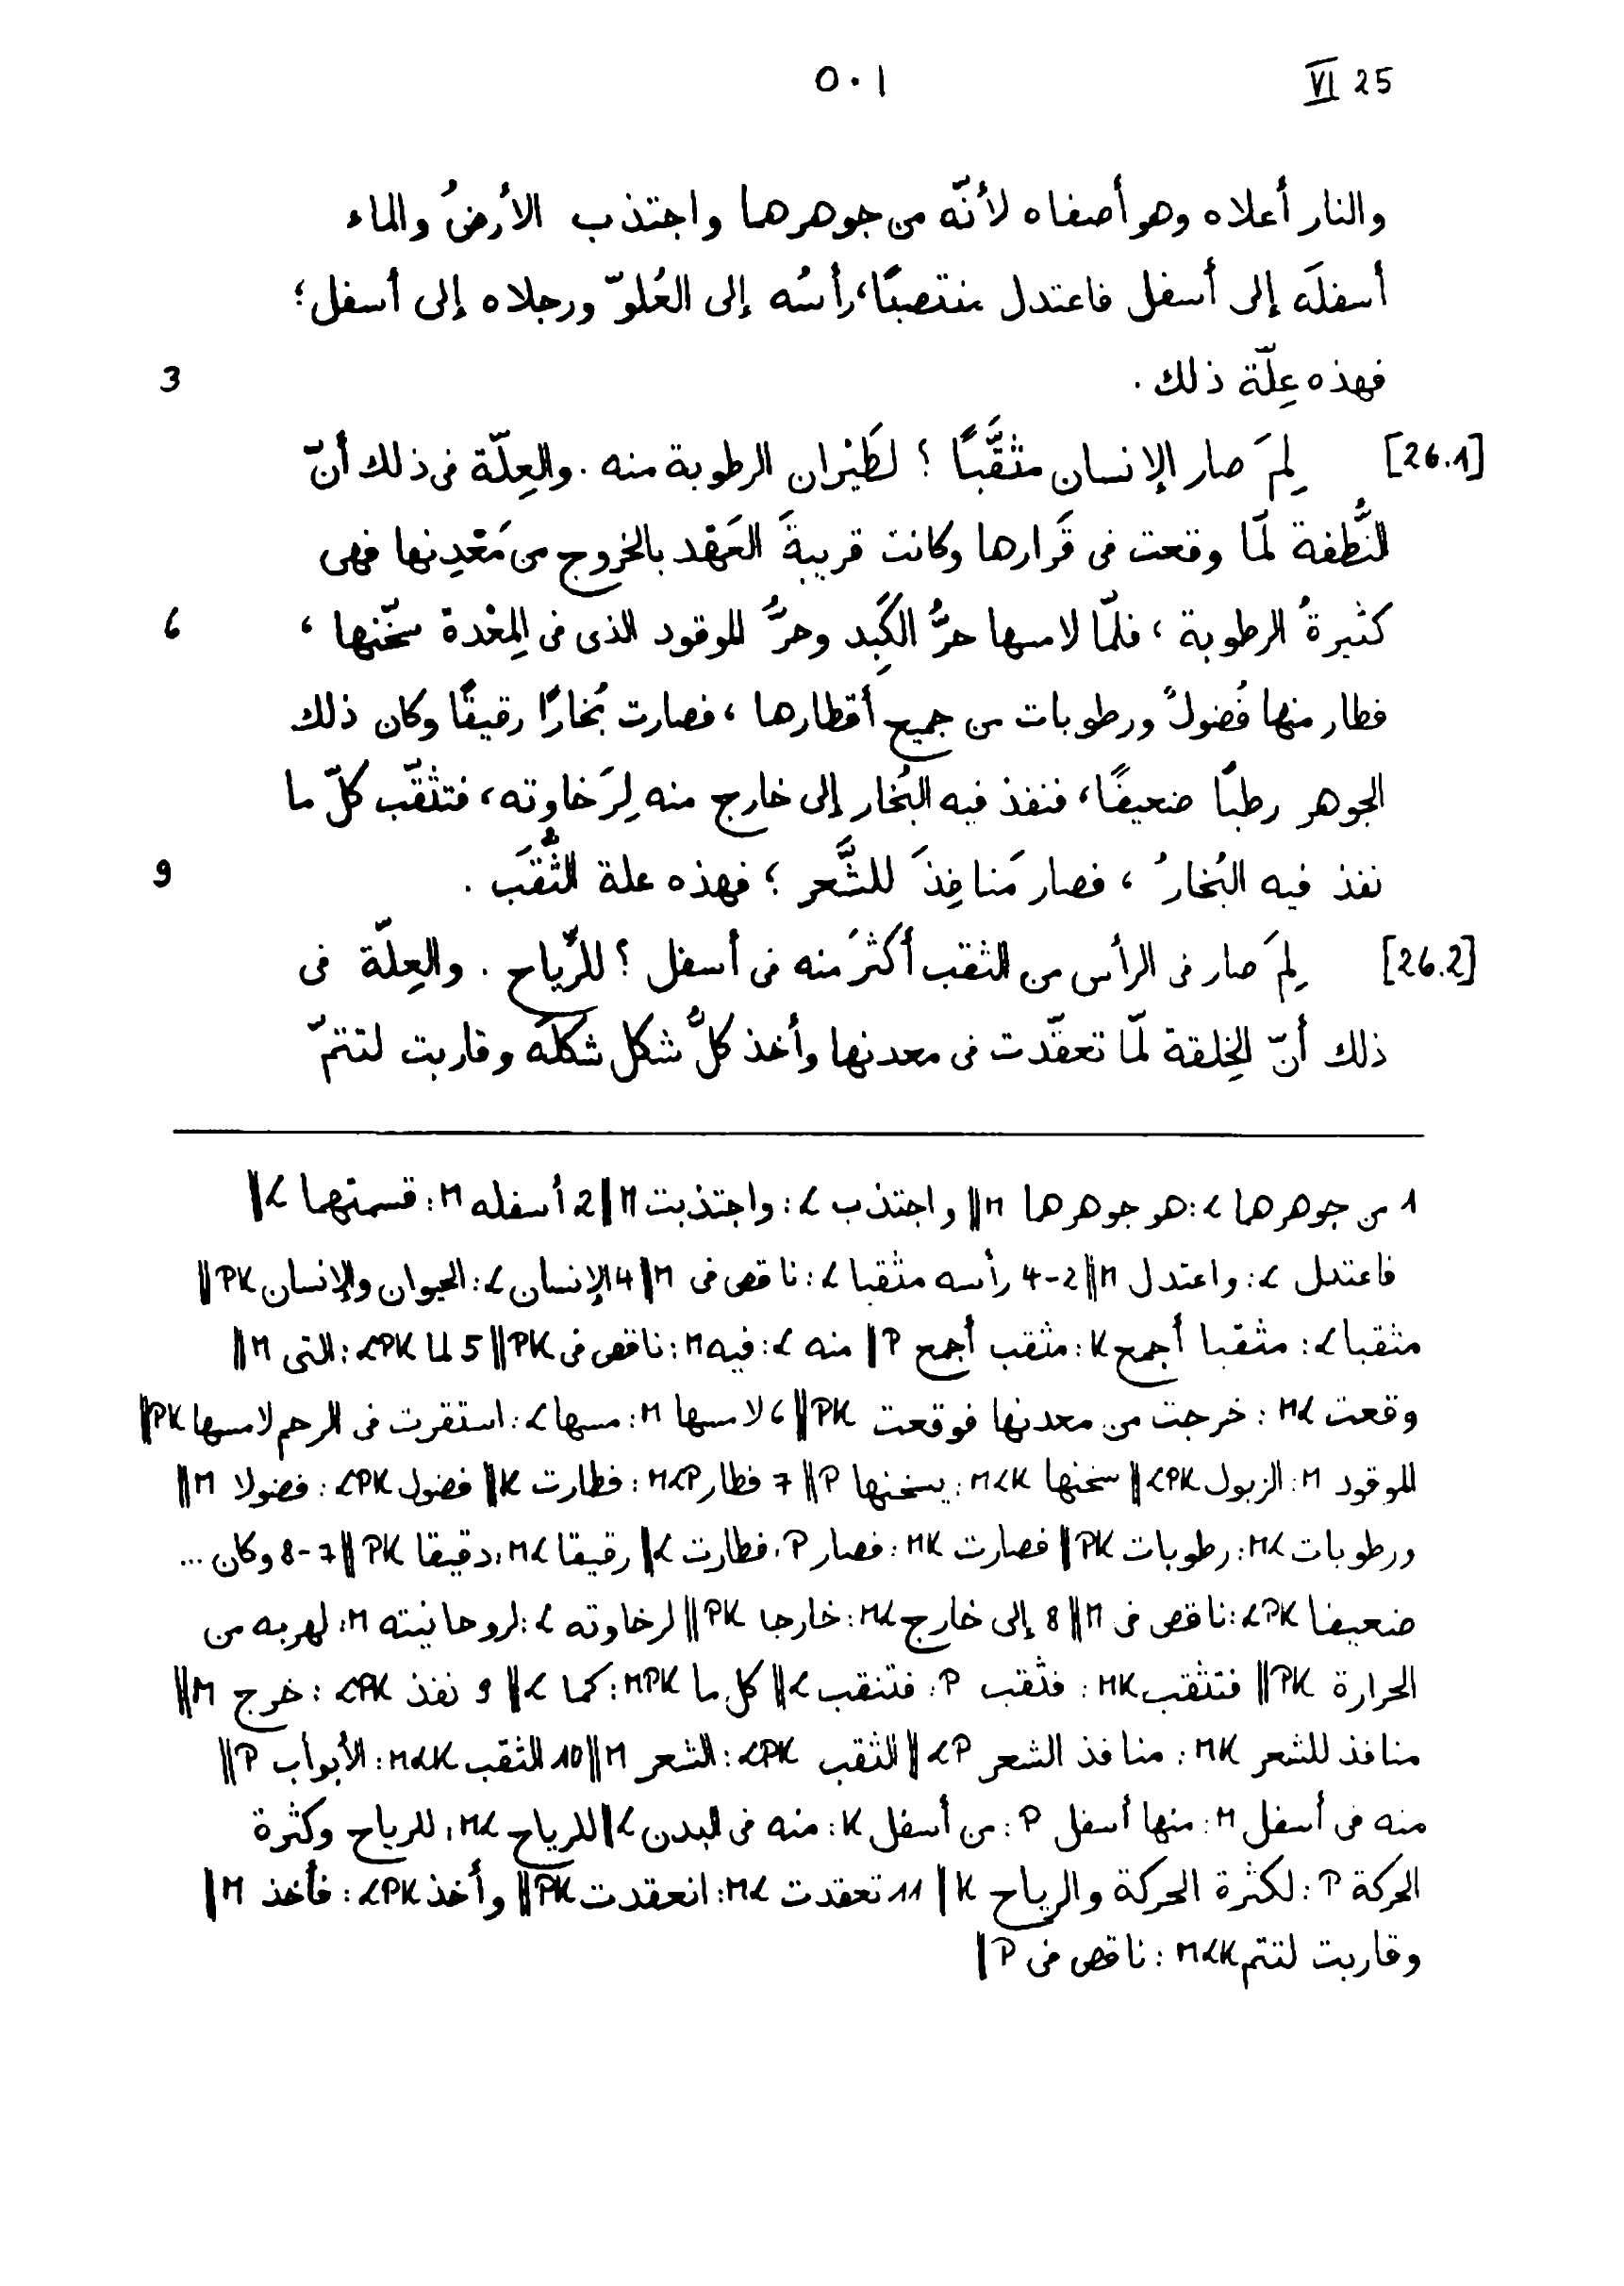 ٥٠١
VI 25
والنار أعلاه وهو أصفاه لأنّه من جوهرهما واجتذب الأرضُ والماء
أسفلَه إلى أسفل فاعتدل منتصبًا، رأسُه إلى العُلوّ ورجلاه إلى أسفل؛
فهذه عِلّة ذلك. 3
[26.1] لِمَ صار الإنسان مثقَّبًا؟ لطَيْران الرطوبة منه. والعِلّة فى ذلك أنّ
النُّطفة لمّا وقعت فى قَرارها وكانت قريبةَ العَهْد بالخروج من مَعْدِنها فهى
كثيرةُ الرطوبة، فلمّا لامسها حرُّ الكَبِد وحرُّ الموقود الذى فى المِعْدة سخّنها، 6
فطار منها فُضولٌ ورطوبات من جميع أقطارها، فصارت بُخارًا رقيقًا وكان ذلك
الجوهر رطبًا ضعيفًا، فنفذ فيه البُخار إلى خارج منه لِرَخاوته، فتثقّب كلّ ما
نفذ فيه البُخارُ، فصار مَنافِذَ للشَّعر؛ فهذه علة الثُّقَب. 9
[26.2] لِمَ صار فى الرأس من الثقب أكثرَ منه فى أسفل؟ للرِّياح. والعِلّة فى
ذلك أنّ الخِلقة لمّا تعقّدت فى معدنها وأخذ كلُّ شكل شكلَه وقاربت لتتمّ
1 من جوهرهما L: هو جوهرهما M‖ واجتذب L: واجتذبت M‖ 2 أسفله M: قسمتهما L‖
فاعتدل L: واعتدل M‖ 2-4 رأسه مثقبا L: ناقص فى M‖ 4 الإنسان L: الحيوان والإنسان PK‖
مثقبا L: مثقبا أجمع K: مثقب أجمع P‖ منه L: فيه M: ناقص فى PK‖ 5 لما LPK: التى M‖
وقعت ML: خرجت من معدنها فوقعت PK‖ 6 لامسها M: مسها L: استقرت فى الرحم لامسها PK‖
الموقود M: الزبول LPK‖ سخنها MLK: يسخنها P‖ 7 فطار MLP: فطارت K‖ فضول LPK: فضولا M‖
ورطوبات ML: رطوبات PK‖ فصارت MK: فصار P: فطارت L‖ رقيقا ML: دقيقا PK‖ 7-8 وكان ...
ضعيفا LPK: ناقص فى M‖ 8 إلى خارج ML: خارجا PK‖ لرخاوته L: لروحانيته M: لهربه من
الحرارة PK‖ فتثقب MK: فثقب P: فتنقب L‖ كل ما MPK: كما L‖ 9 نفذ LPK: خرج M‖
منافذ للشعر MK: منافذ الشعر LP‖ الثقب LPK: الشعر M‖ 10 الثقب MLK: الأبواب P‖
منه فى أسفل M: منها أسفل P: من أسفل K: منه فى البدن L‖ للرياح ML: للرياح وكثرة
الحركة P: لكثرة الحركة والرياح K‖ 11 تعقدت ML: انعقدت PK‖ وأخذ LPK: فأخذ M‖
وقاربت لتتم MLK: ناقص فى P‖